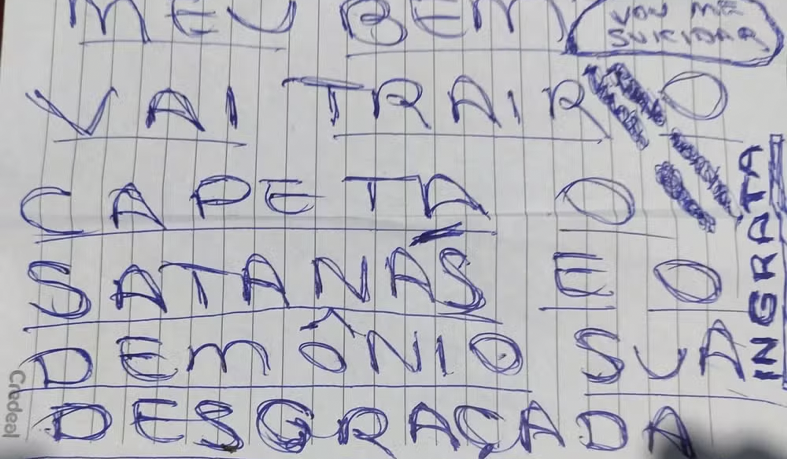 MEU BEM
VOU ME
SUICIDAR
VAI TRAIR O
CAPETA O
SATANÁS E O
DEMÔNIO SUA
DESGRAÇADA
INGRATA
Credeal